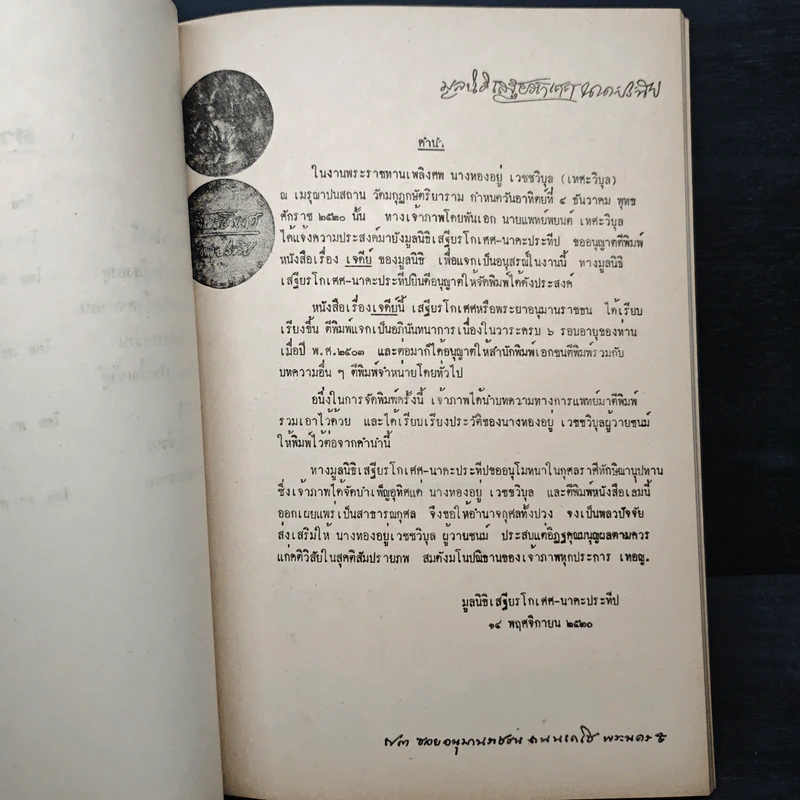 มูลนิธิเสฐียรโกเศศ นาคะประทีป
คำนำ
ในงานพระราชทานเพลิงศพ นางทองอยู่ เวชชวิบุล (เหตะวิบุล)
ณ เมรุฌาปนสถาน วัดมกุฏกษัตริยาราม กำหนดวันอาทิตย์ที่ ๔ ธันวาคม พุทธ
ศักราช ๒๕๒๐ นั้น ทางเจ้าภาพโดยพันเอก นายแพทย์พยนต์ เหตะวิบุล
ได้แจ้งความประสงค์มายังมูลนิธิเสฐียรโกเศศ-นาคะประทีป ขออนุญาตตีพิมพ์
หนังสือเรื่อง เจดีย์ ของมูลนิธิ เพื่อแจกเป็นอนุสรณ์ในงานนี้ ทางมูลนิธิ
เสฐียรโกเศศ-นาคะประทีปยินดีอนุญาตให้จัดพิมพ์ได้ดังประสงค์
หนังสือเรื่องเจดีย์นี้ เสฐียรโกเศศหรือพระยาอนุมานราชธน ได้เรียบ
เรียงขึ้น ตีพิมพ์แจกเป็นอภินันทนาการเนื่องในวาระครบ ๖ รอบอายุของท่าน
เมื่อปี พ.ศ.๒๕๐๓ และต่อมาก็ได้อนุญาตให้สำนักพิมพ์เอกชนตีพิมพ์รวมกับ
บทความอื่น ๆ ตีพิมพ์จำหน่ายโดยทั่วไป
อนึ่งในการจัดพิมพ์ครั้งนี้ เจ้าภาพได้นำบทความทางการแพทย์มาตีพิมพ์
รวมเอาไว้ด้วย และได้เรียบเรียงประวัติของนางทองอยู่ เวชชวิบุลผู้วายชนม์
ให้พิมพ์ไว้ต่อจากคำนำนี้
ทางมูลนิธิเสฐียรโกเศศ-นาคะประทีปขออนุโมทนาในกุศลราศีทักษิณานุปทาน
ซึ่งเจ้าภาพได้จัดบำเพ็ญอุทิศแด่ นางทองอยู่ เวชชวิบุล และตีพิมพ์หนังสือเล่มนี้
ออกเผยแพร่เป็นสาธารณกุศล จึงขอให้อำนาจกุศลทั้งปวง จงเป็นพลวปัจจัย
ส่งเสริมให้ นางทองอยู่ เวชชวิบุล ผู้วายชนม์ ประสบแต่อิฏฐคุณมนุญผลตามควร
แก่คติวิสัยในสุคติสัมปรายภพ สมดังมโนปณิธานของเจ้าภาพทุกประการ เทอญ.
มูลนิธิเสฐียรโกเศศ-นาคะประทีป
๑๔ พฤศจิกายน ๒๕๒๐
ซอยอนุมานราชธน ถนนเดโช พระนคร